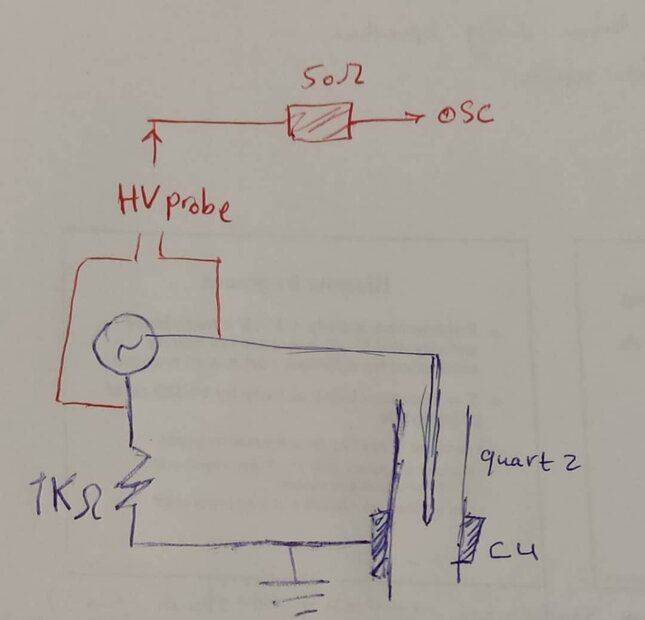 50Ω
OSC
HV probe
~
1KΩ
quartz
Cu